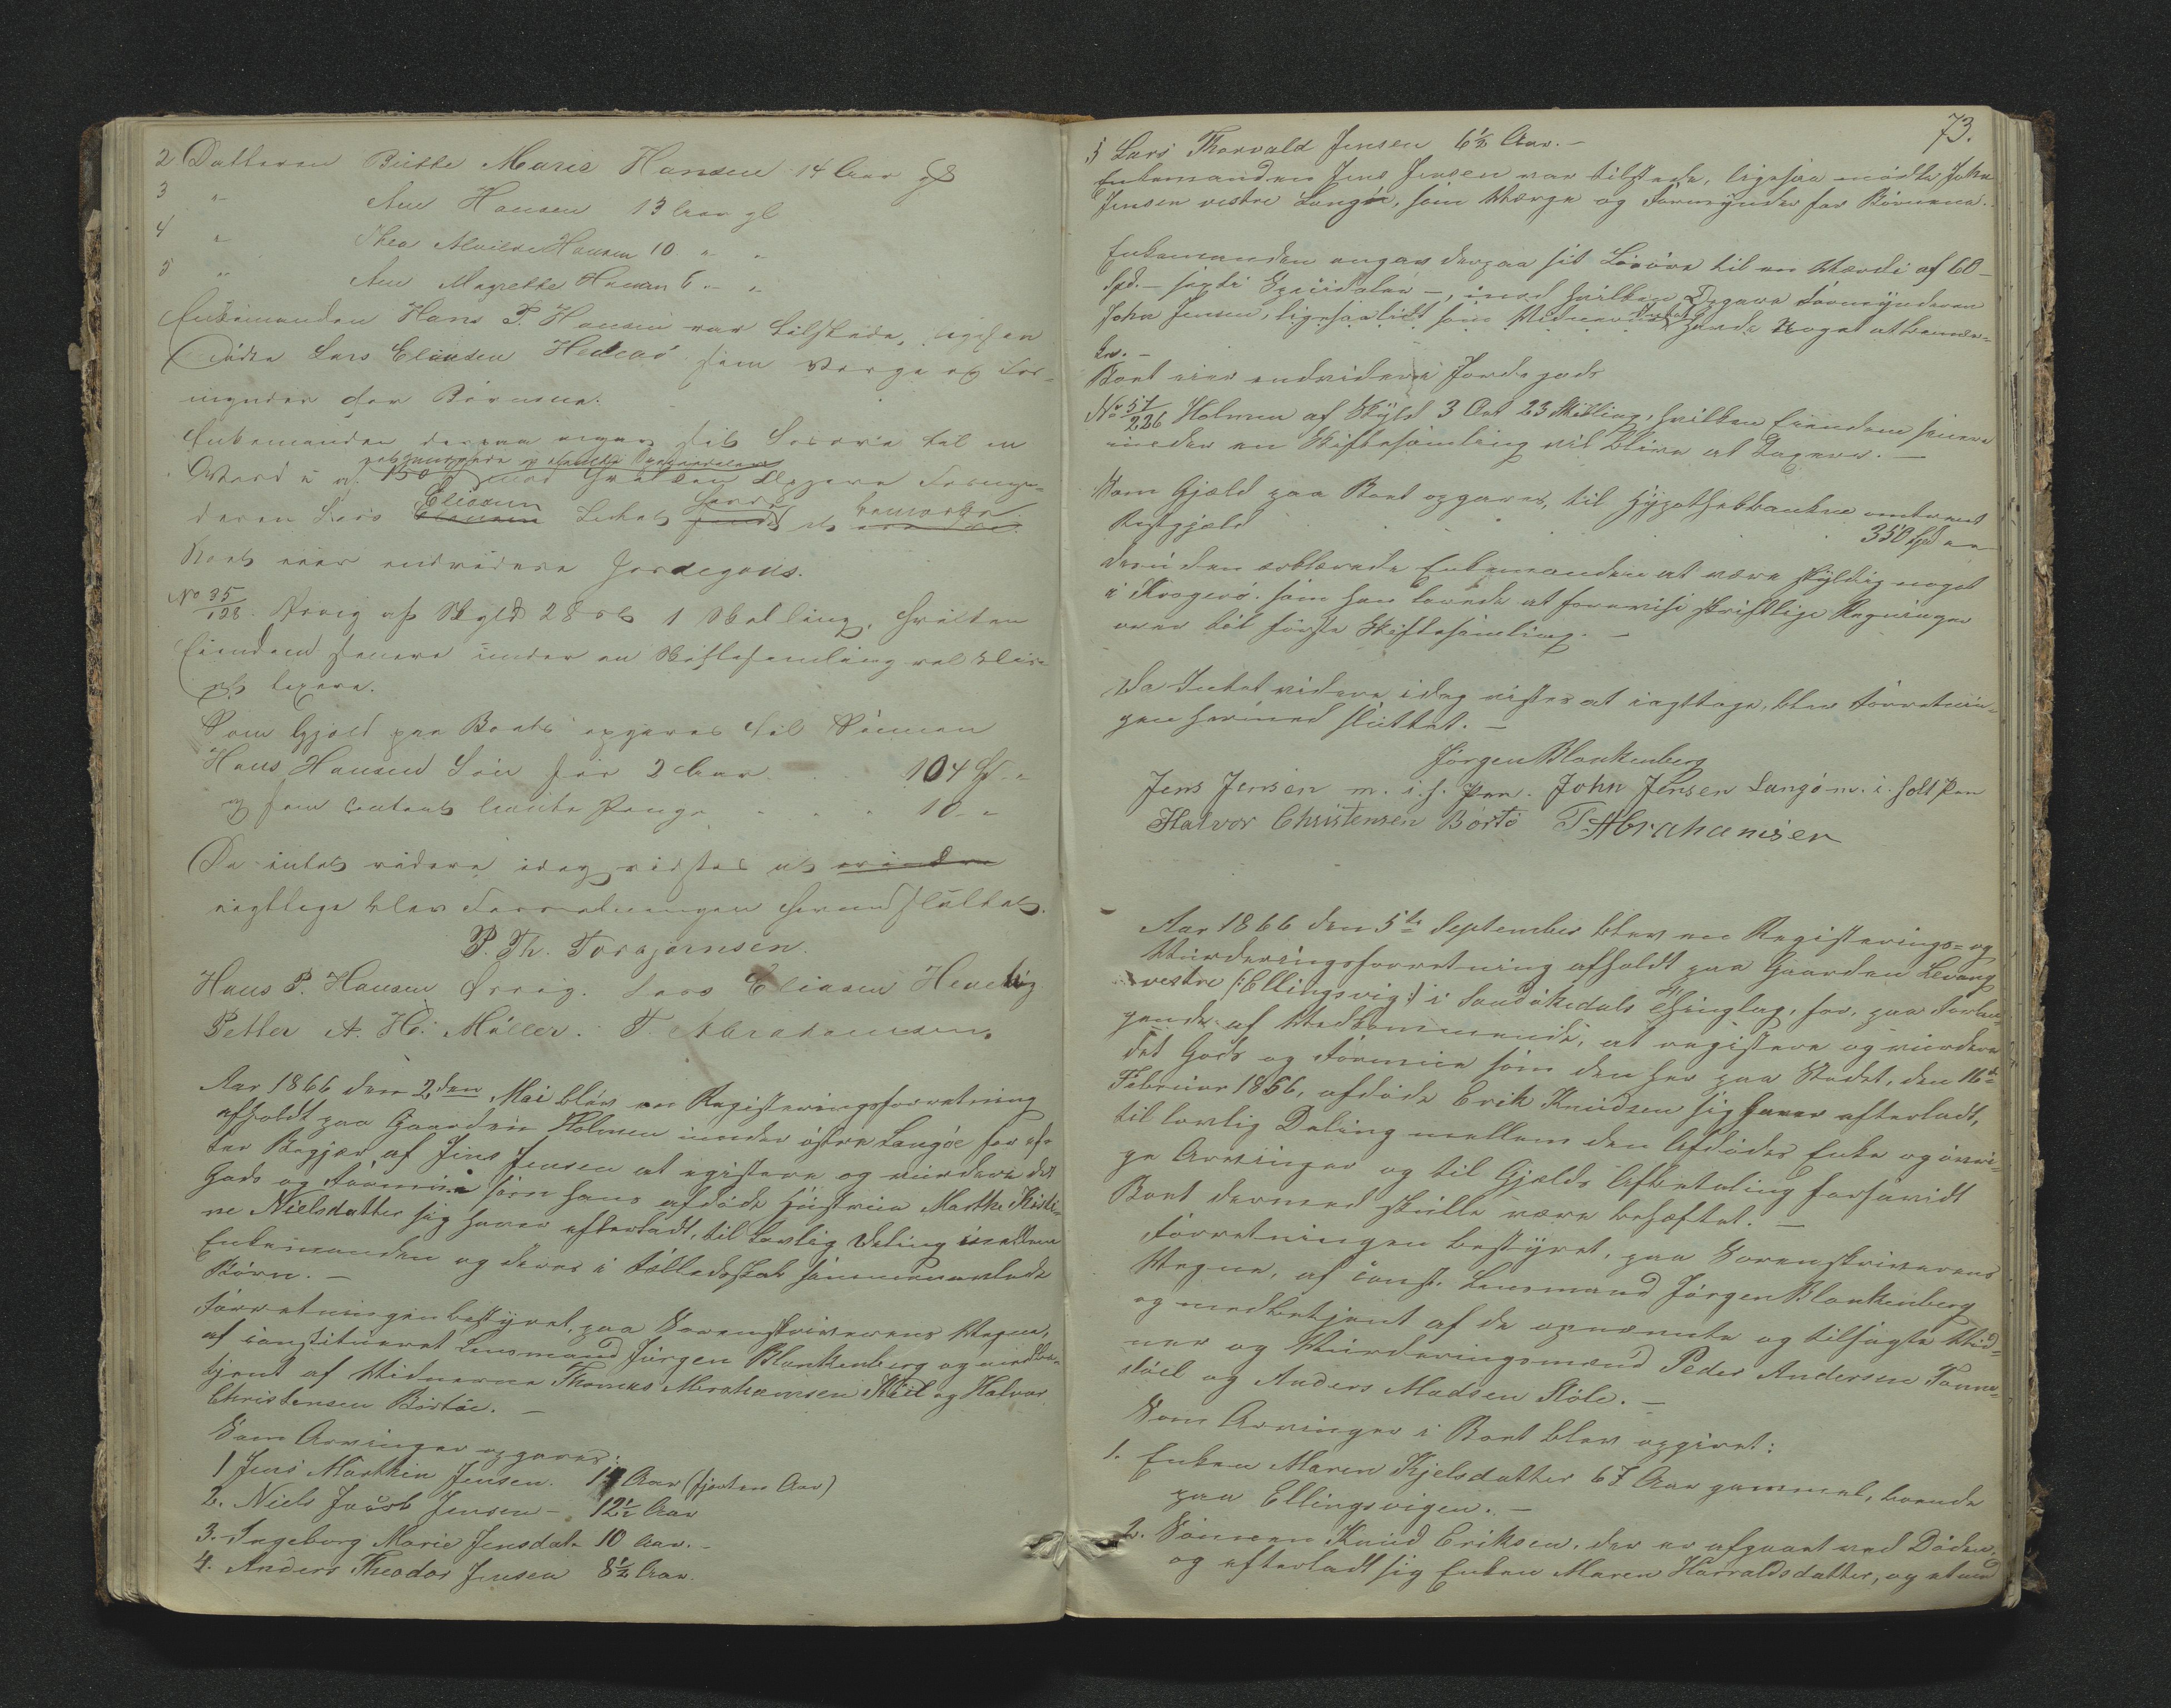 2 Datteren Birthe Marie Hansen 14 Aar gl
3 " Ane Hansen 13 Aar gl
4 " Thea Alvilde Hansen 10 " "
5 " Ane Magrethe Hansen 6 " "
Enkemanden Hans P. Hansen var tilstæde, ligesaa
mødte Lars Eliasen som Verge og For-
mynder for Børnene.
Enkemanden derpaa angav sit Løsøre til en
Værdi af 150 mod hvilken Opgave Formyn-
deren Lars Eliasen Intet havde at bemærke
Boet eier endvidere Jordegods.
No 35/128. Ørvig af Skyld 2 Ort 1 Skilling, hvilken
Eiendom senere under en Skiftesamling vil blive
at taxere.
Som Gjæld paa Boet opgaves til Sønnen
Hans Hansen Løn for 2 Aar 104 Spd "
og som contant laante Penge 10 "
Da intet videre idag vistes at erindre
iagttage blev Forretningen hermed sluttet.
P. Th. Torbjørnsen.
Hans P. Hansen Ørvig. Lars Eliasen
Petter A. Møller. T. Abrahamsen.
Aar 1866 den 2den Mai blev en Registeringsforretning
afholdt paa Gaarden Holmen under østre Langøe for ef-
ter Begjær af Jens Jensen at registere og vurdere det
Gods og Formue som hans afdøde Hustrue Marthe Kirsti-
ne Nielsdatter sig haver efterladt, til Lovlig Deling imellem
Enkemanden og deres i Fælledsskab sammenavlede
Børn. —
Forretningen bestyret, paa Sorenskriverens Vegne,
af constitueret Lensmand Jørgen Blankenberg og medbe-
tjent af Vidnerne Thomas Abrahamsen Kiil og Halvor
Christensen Bortøe. —
Som Arvinger opgaves:
1 Jens Marthin Jensen. 14 Aar (fjorten Aar)
2. Niels Jacob Jensen — 12½ Aar
3. Ingeborg Marie Jensdat. 10 Aar. —
4. Anders Theodor Jensen 8½ Aar.
73.
5 Lars Thorvald Jensen 6½ Aar. —
Enkemanden Jens Jensen var tilstede, ligesaa mødte John
Jensen vestre Langøe, som Værge og Formynder for Børnene.
Enkemanden angav derpaa sit Løsøre til en Værdi af 60 —
Spd. — sexti Speciedaler —, imod hvilken Opgave Formynderen
John Jensen, ligesaalidt som Vidnerne havde noget at bemær-
ke. —
Boet eier endvidere Jordegods
No 57/226 Holmen af Skyld 3 Ort 23 Skilling, hvilken Eiendom senere
under en Skiftesamling vil blive at taxere. —
Som Gjæld paa Boet opgaves, til Hypothekbanken omtrent
Restgjæld 350 Spd
desuden erklærede Enkemanden at være skyldig noget
i Kragerø. som han lovede at forevise skriftlige Regninger
over til første Skiftesamling. —
Da Intet videre idag vistes at iagttage, blev Forretnin-
gen hermed sluttet. —
Jørgen Blankenberg
Jens Jensen m. i. h. Pen. John Jensen Langø m. i. hold Pen
Halvor Christensen Bortø T. Abrahamsen
Aar 1866 den 5te September blev en Registerings- og
Vurderingsforretning afholdt paa Gaarden Levang
vestre (: Ellingsvig :) i Sandøkedals Thinglag, for, paa Forlan-
gende af Vedkommende, at registere og vurdere
det Gods og Formue som den her paa Stedet, den 16de
Februar 1866, afdøde Erik Knudsen sig haver efterladt,
til lovlig Deling mellem den Afdødes Enke og øvri-
ge Arvinger og til Gjælds Afbetaling forsavidt
Boet dermed skulle være behæftet. —
Forretningen bestyret, paa Sorenskriverens
Vegne, af const. Lensmand Jørgen Blankenberg
og medbetjent af de opnævnte og tilsagte Vid-
ner og Vurderingsmænd Peder Andersen Tonne-
støel og Anders Madsen Støle. —
Som Arvinger i Boet blev opgivet:
1. Enken Maren Kjelsdatter 67 Aar gammel, boende
paa Ellingsvigen. —
2. Sønnen Knud Eriksen, der er afgaaet ved Døden,
og efterladt sig Enken Maren Harraldsdatter, og